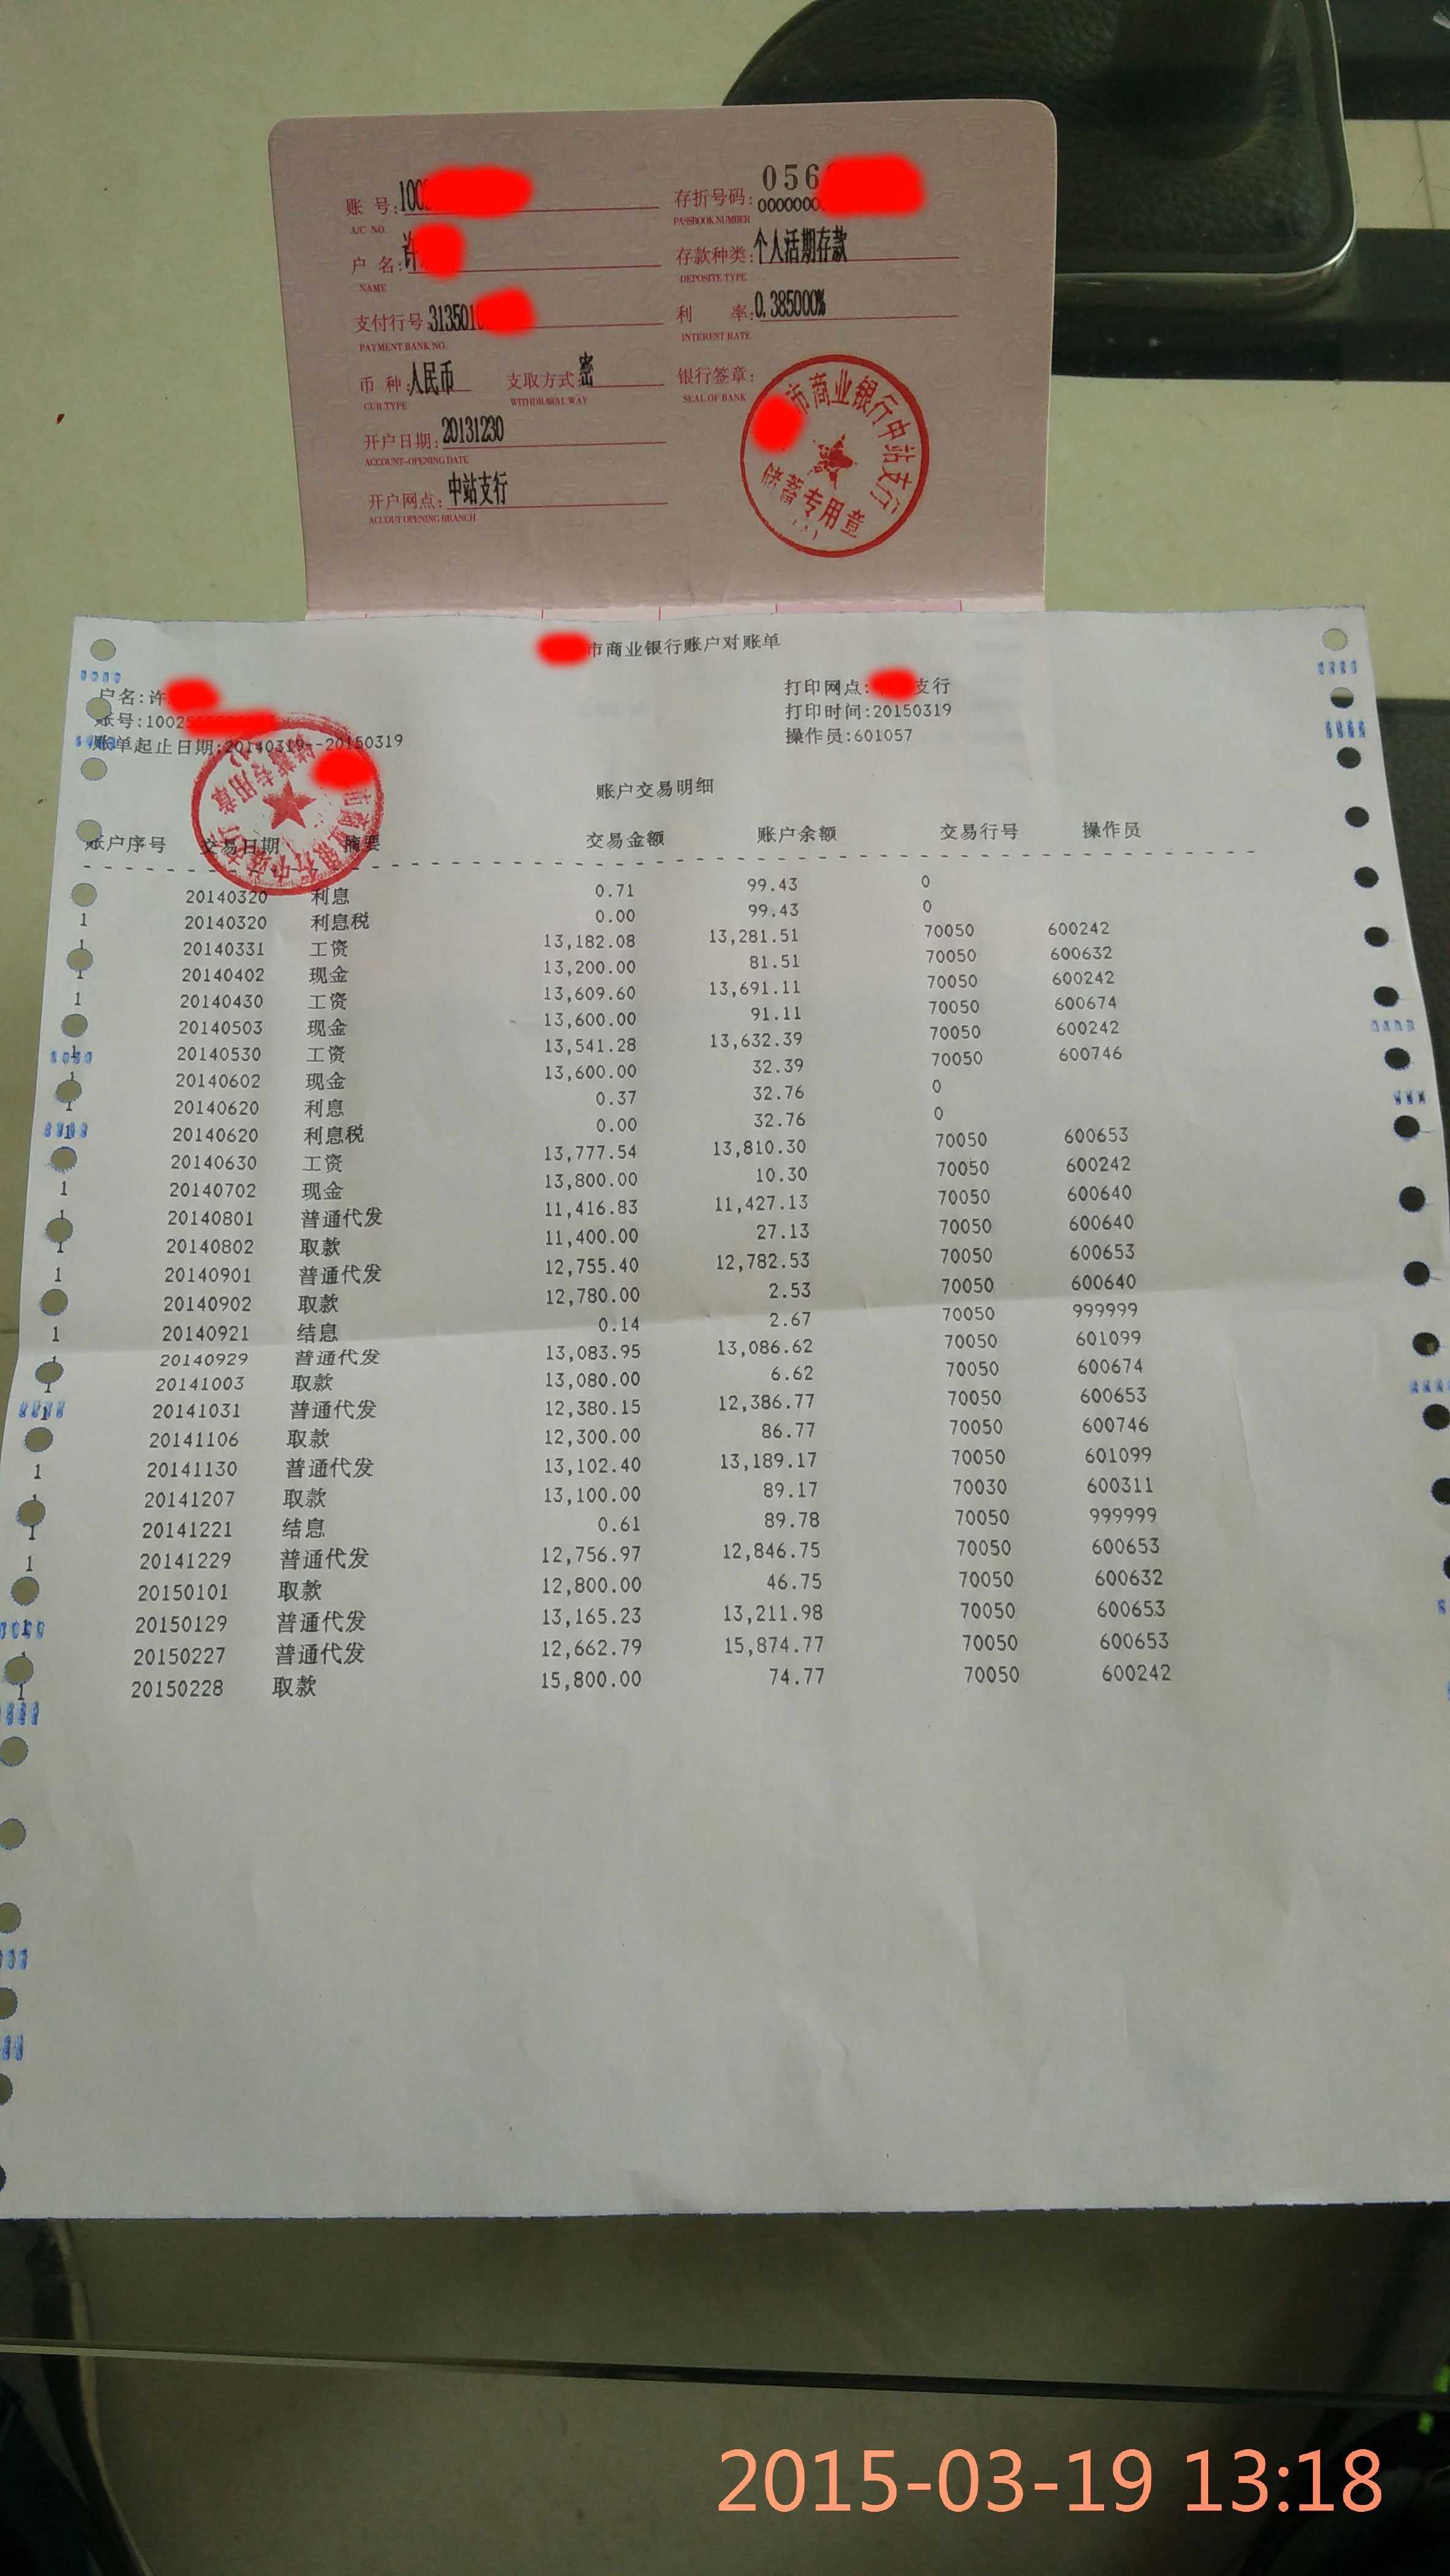 账 号: 100
A/C NO.
户 名: 许
NAME
支付行号: 313501
PAYMENT BANK NO.
币 种: 人民币 支取方式: 密
CUR TYPE WITHDRAWAL WAY
开户日期: 20131230
ACCOUNT-OPENING DATE
开户网点: 中站支行
ACCOUT OPENING BRANCH
存折号码: 056
0000000
PASSBOOK NUMBER
存款种类: 个人活期存款
DEPOSITE TYPE
利 率: 0.385000%
INTEREST RATE
银行签章:
SEAL OF BANK
市商业银行中站支行
储蓄专用章
市商业银行账户对账单
户名:许
账号:1002
账单起止日期:20140319--20150319
打印网点: 支行
打印时间:20150319
操作员:601057
账户交易明细
账户序号 交易日期 摘要 交易金额 账户余额 交易行号 操作员
20140320 利息 0.71 99.43 0
1 20140320 利息税 0.00 99.43 0
1 20140331 工资 13,182.08 13,281.51 70050 600242
1 20140402 现金 13,200.00 81.51 70050 600632
1 20140430 工资 13,609.60 13,691.11 70050 600242
20140503 现金 13,600.00 91.11 70050 600674
1 20140530 工资 13,541.28 13,632.39 70050 600242
1 20140602 现金 13,600.00 32.39 70050 600746
1 20140620 利息 0.37 32.76 0
1 20140620 利息税 0.00 32.76 0
20140630 工资 13,777.54 13,810.30 70050 600653
1 20140702 现金 13,800.00 10.30 70050 600242
1 20140801 普通代发 11,416.83 11,427.13 70050 600640
1 20140802 取款 11,400.00 27.13 70050 600640
1 20140901 普通代发 12,755.40 12,782.53 70050 600653
20140902 取款 12,780.00 2.53 70050 600640
1 20140921 结息 0.14 2.67 70050 999999
20140929 普通代发 13,083.95 13,086.62 70050 601099
1 20141003 取款 13,080.00 6.62 70050 600674
1 20141031 普通代发 12,380.15 12,386.77 70050 600653
20141106 取款 12,300.00 86.77 70050 600746
1 20141130 普通代发 13,102.40 13,189.17 70050 601099
20141207 取款 13,100.00 89.17 70030 600311
1 20141221 结息 0.61 89.78 70050 999999
1 20141229 普通代发 12,756.97 12,846.75 70050 600653
20150101 取款 12,800.00 46.75 70050 600632
1 20150129 普通代发 13,165.23 13,211.98 70050 600653
20150227 普通代发 12,662.79 15,874.77 70050 600653
1 20150228 取款 15,800.00 74.77 70050 600242
2015-03-19 13:18